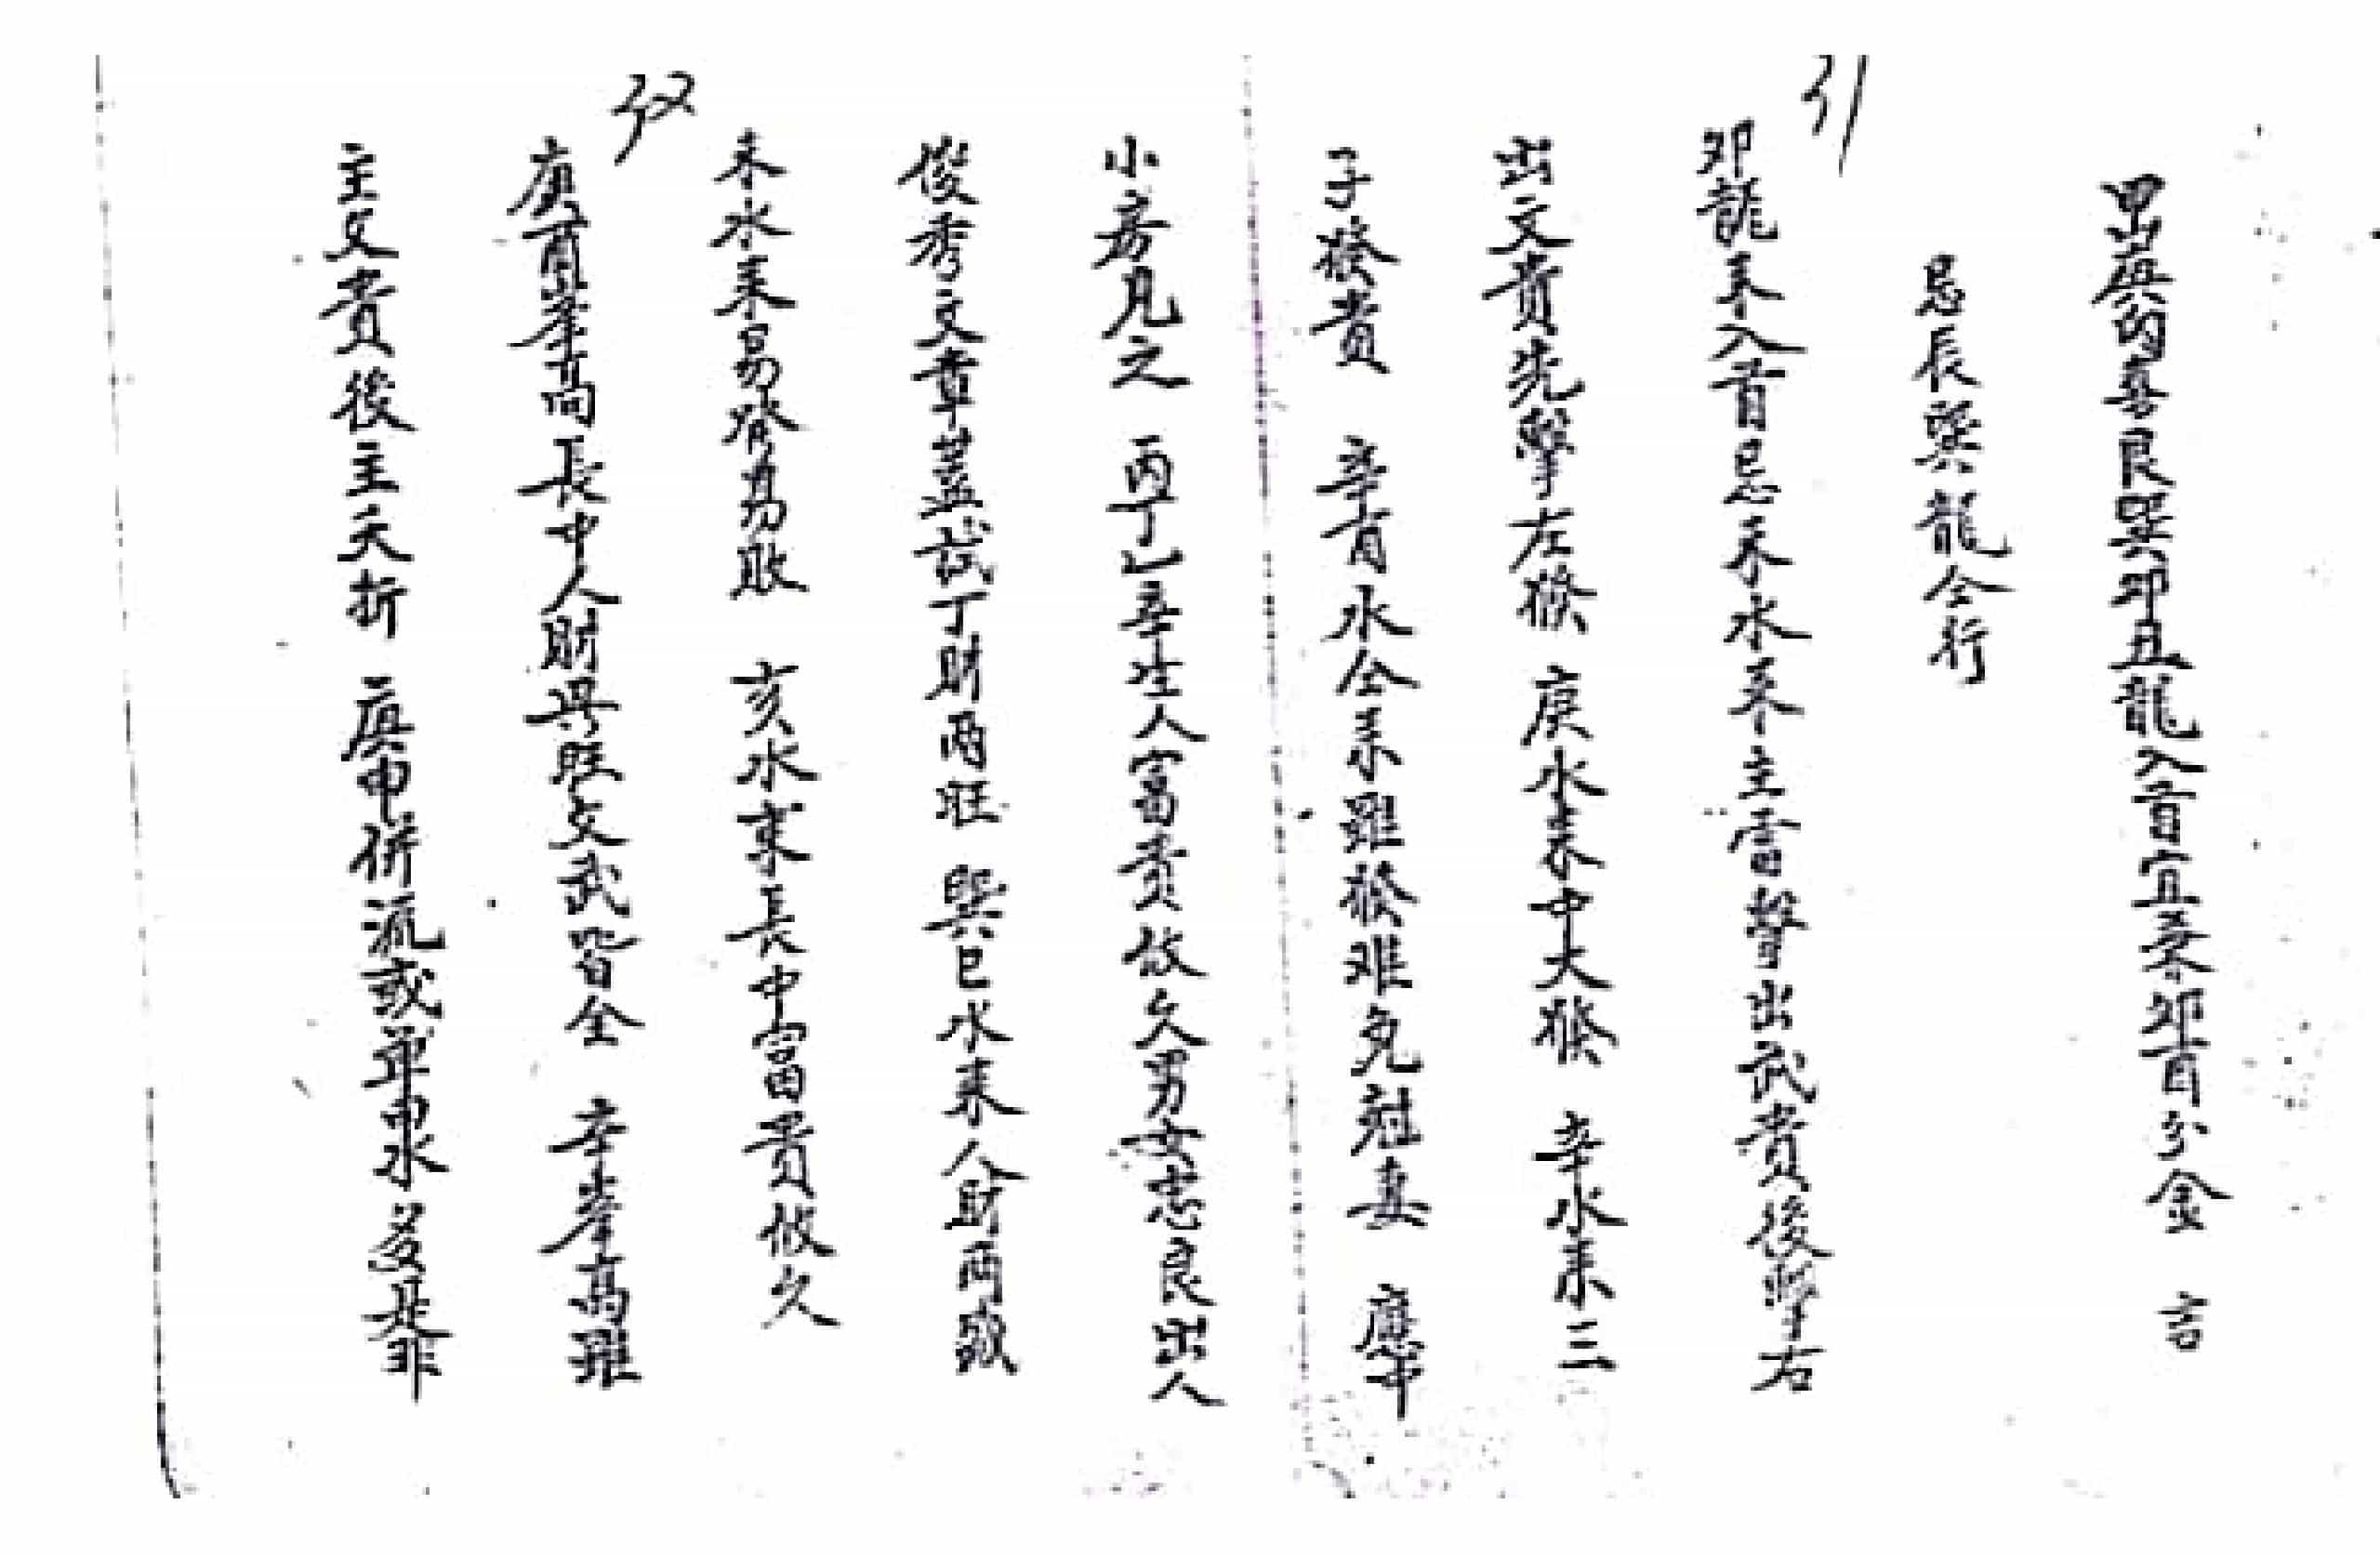 甲山庚向喜艮巽卯丑龍入首宜奉卯酉分金 吉
忌辰巽龍仝行
卯龍来入首忌未水来主盲聾出武貴後擎右
出文貴先擎左發 庚水来中大發 辛水来三
子發貴 辛酉水仝来雖發难免尅妻 庚申
小房見之 丙丁乙辛生人富貴攸久男女忠良出人
俊秀文章葢試丁財两旺 巽巳水来人財两盛
未水来易發易敗 亥水来長中富貴攸久
庚酉峯高長中人財興旺文武皆全 辛峯高雖
主文貴後主夭折 庚申併流或單申水多是非